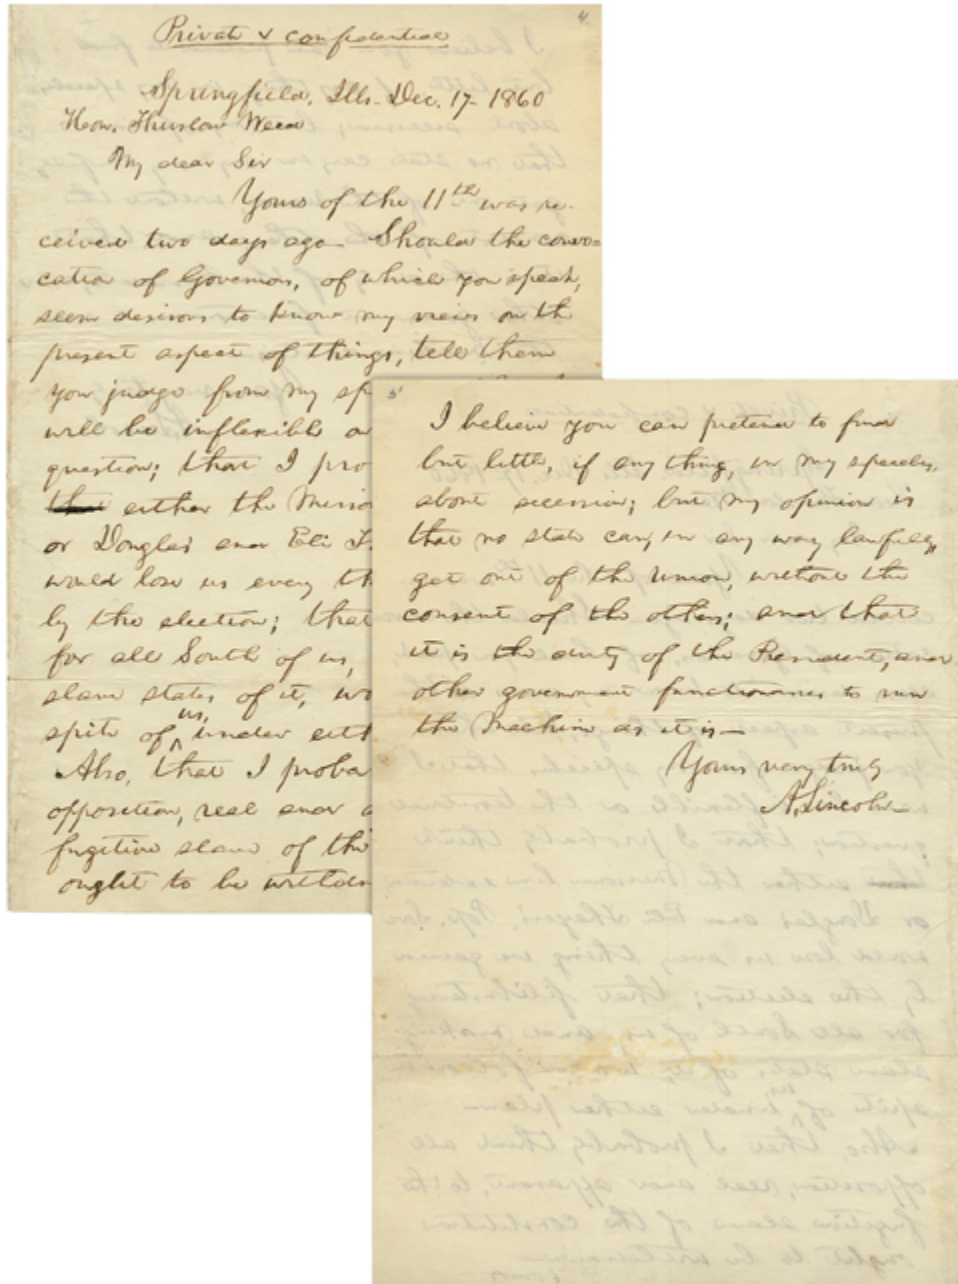 4.
Private & confidential
Springfield, Ills. Dec. 17- 1860
Hon. Thurlow Weed
My dear Sir
Yours of the 11th was re-
ceived two days ago- Should the convo-
cation of Governors, of which you speak,
seem desirous to know my views on the
present aspect of things, tell them
you judge from my sp
will be inflexible o
question; that I pro
that either the Misso
or Douglas' and Eli T
would lose us every th
by the election; that
for all South of us,
slave states of it, wo
spite of us, under eith
Also, that I proba
opposition, real and a
fugitive slave of the
ought to be withdr
5
I believe you can pretend to find
but little, if any thing, in my speeches,
about secession; but my opinion is
that no state can, in any way lawfully,
get out of the Union, without the
consent of the others; and that
it is the duty of the President, and
other government functionaries to run
the machine as it is-
Yours very truly
A. Lincoln-